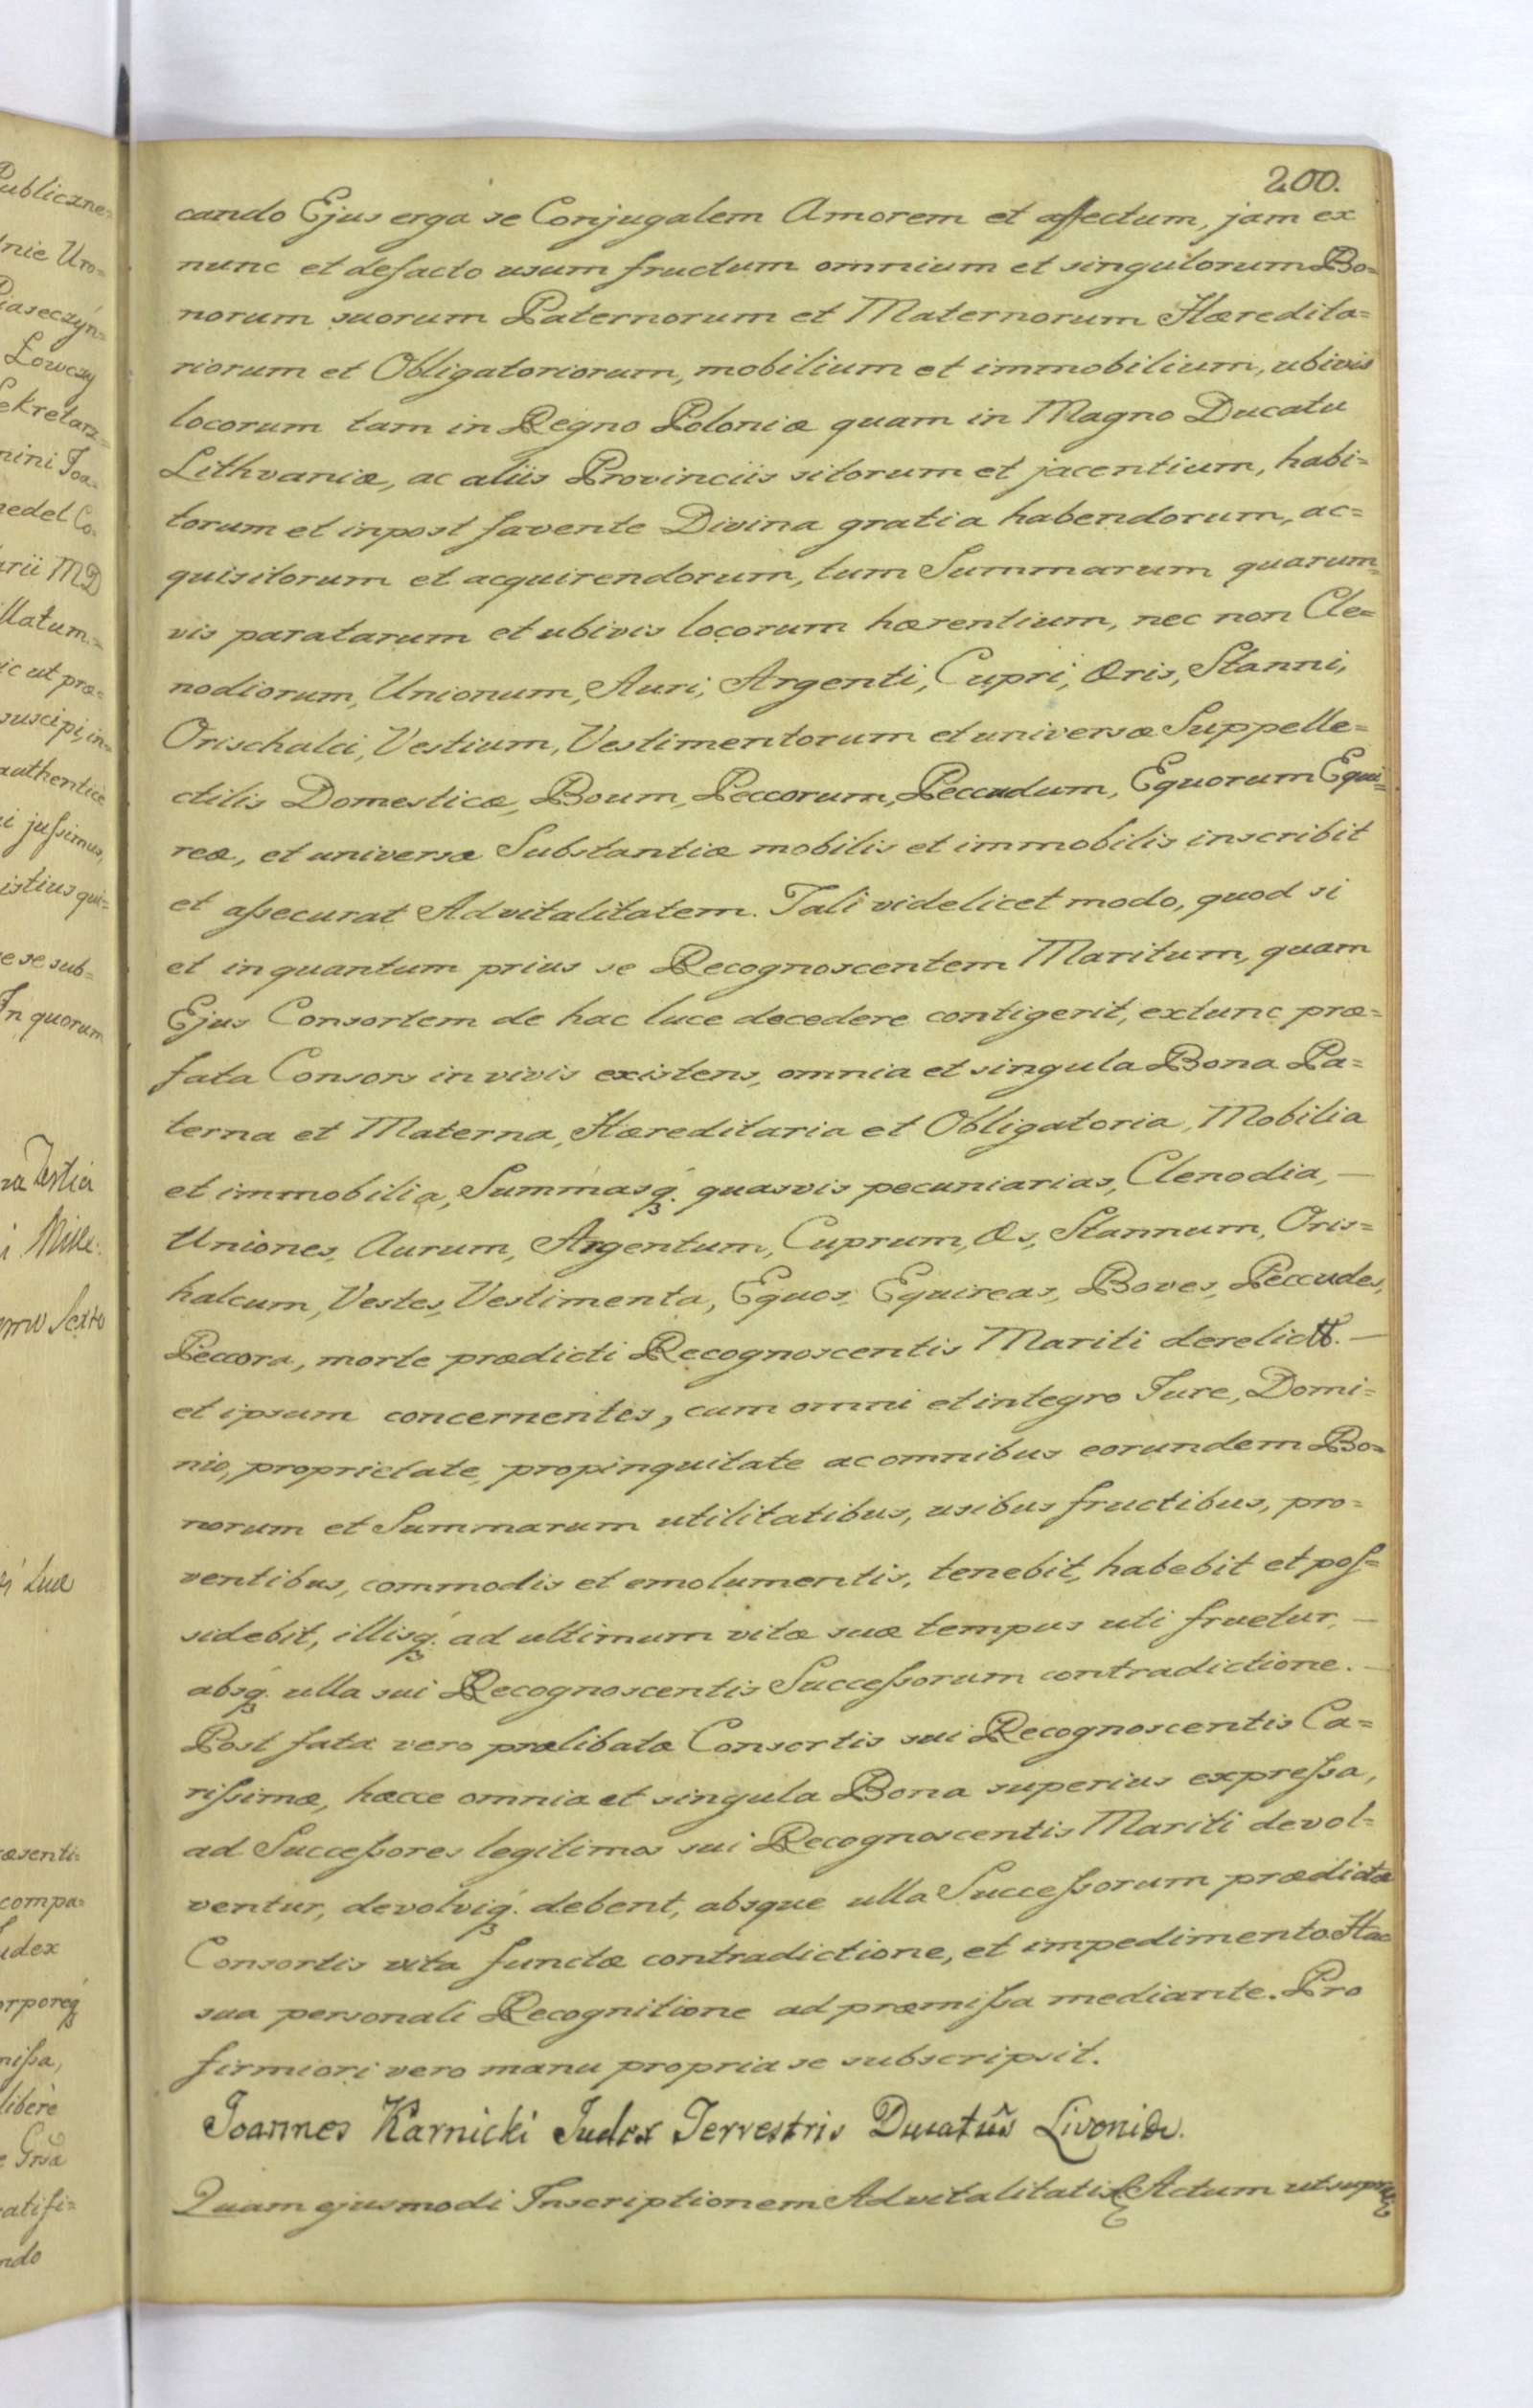 200.
cando Ejus erga se Conjugalem Amorem et affectum, jam ex
nunc et defacto usum fructum omnium et singulorum Bo=
norum suorum Paternorum et Maternorum Hæredita=
riorum et Obligatoriorum, mobilium et immobilium, ubivis
locorum tam in Regno Poloniæ quam in Magno Ducatu
Lithvaniæ, ac aliis Provinciis sitorum et jacentium, habi=
torum et inpost favente Divina gratia habendorum, ac=
quisitorum et acquirendorum, tum Summarum quarum=
vis paratarum et ubivis locorum hærentium, nec non Cle=
nodiorum, Unionum, Auri, Argenti, Cupri, Æris, Stanni,
Orischalci, Vestium, Vestimentorum et universæ Suppelle=
ctilis Domesticæ, Boum, Peccorum, Peccudum, Equorum Equi=
reæ, et universæ Substantiæ mobilis et immobilis inscribit
et aſsecurat Advitalitatem. Tali videlicet modo, quod si
et inquantum prius se Recognoscentem Maritum, quam
Ejus Consortem de hac luce decedere contigerit, extunc præ=
fata Consors in vivis existens, omnia et singula Bona Pa=
terna et Materna, Hæreditaria et Obligatoria, Mobilia
et immobilia, Summasq́ȝ. quasvis pecuniarias, Clenodia, —
Uniones, Aurum, Argentum, Cuprum, Æs, Stannum, Oris=
halcum, Vestes, Vestimenta, Equos, Equireas, Boves, Peccudes,
Peccora, morte prædicti Recognoscentis Mariti derelictt. —
et ipsum concernentes, cum omni et integro Jure, Domi=
nio, proprietate, propinquitate ac omnibus eorundem Bo=
norum et Summarum utilitatibus, usibus fructibus, pro=
ventibus, commodis et emolumentis, tenebit, habebit et poſ=
sidebit, illisq́ȝ. ad ultimum vitæ suæ tempus uti fruetur, —
absq́ȝ. ulla sui Recognoscentis Succeſsorum contradictione. —
Post fata vero prælibatæ Consortis sui Recognoscentis Ca=
riſsimæ, hæcce omnia et singula Bona superius expreſsa,
ad Succeſsores legitimos sui Recognoscentis Mariti devol=
ventur, devolviq́ȝ. debent, absque ulla Succeſsorum prædictæ
Consortis vita functæ contradictione, et impedimento. Hac
sua personali Recognitione ad præmiſsa mediante. Pro
firmiori vero manu propria se subscripsit.
Joannes Karnicki Judex Terrestris Ducatûs Livoniæ.
Quam ejusmodi Inscriptionem Advitalitatis Actum ut supra